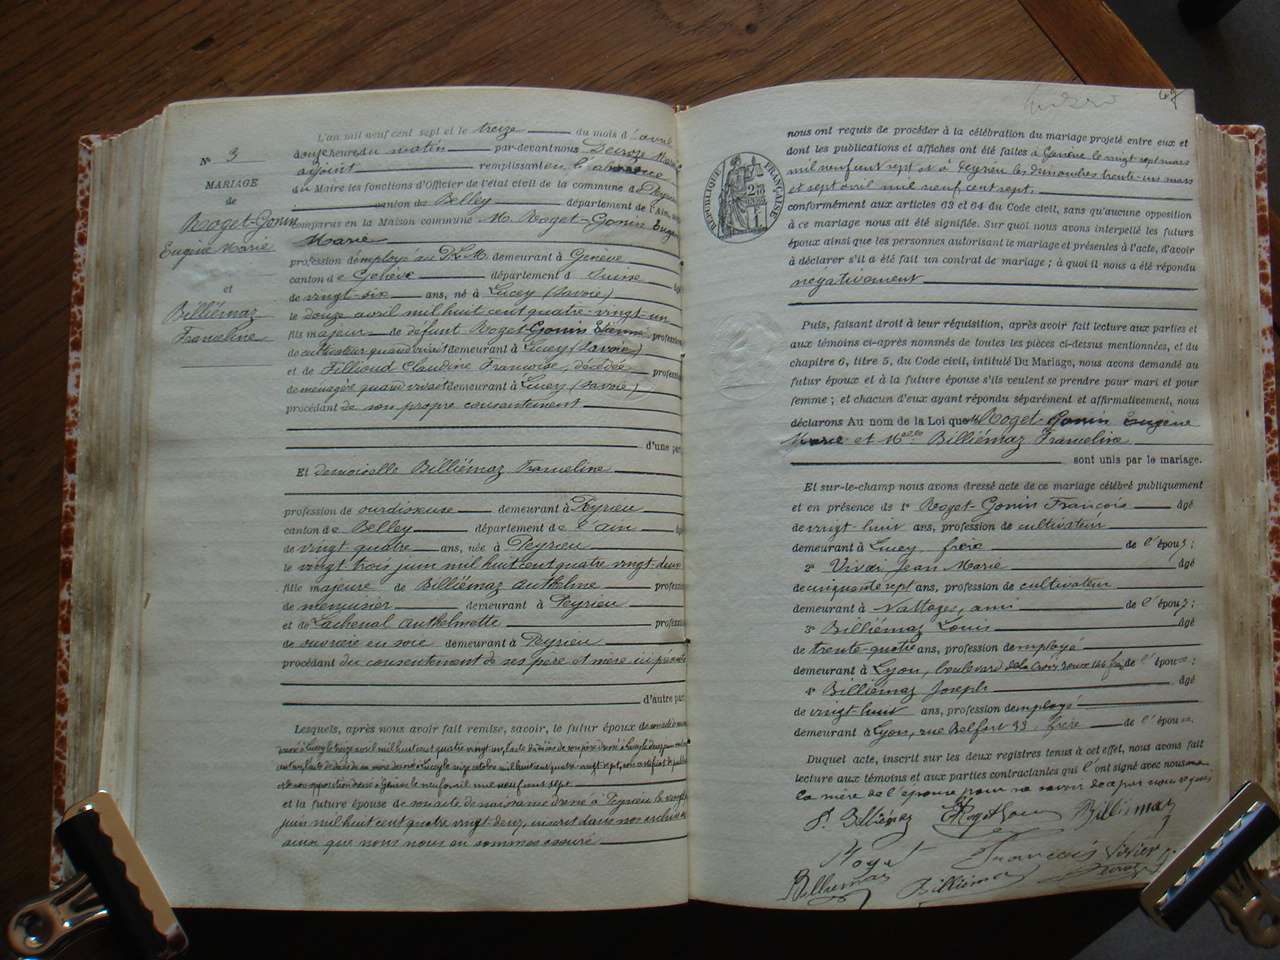 N° 3
MARIAGE
de
Roget-Gonin
Eugène Marie
et
Billiémaz
Franceline
L'an mil neuf cent sept et le treize du mois d'avril
heures du matin par-devant nous Decroze
adjoint remplissant en l'absence
du Maire les fonctions d'Officier de l'état civil de la commune de Peyrieu
canton de Belley département de l'Ain,
comparus en la Maison commune M. Roget-Gonin Eugène
Marie
profession d'employé au P.L.M. demeurant à Genève
canton de Genève département d Suisse âgé
de vingt-six ans, né à Lucey (Savoie)
le douze avril mil huit cent quatre-vingt-un
fils majeur de défunt Roget-Gonin Etienne profession
de cultivateur quand vivait demeurant à Lucey (Savoie)
et de Fillioud Claudine Françoise, décédée profession
de ménagère quand vivait demeurant à Lucey (Savoie)
procédant de son propre consentement
d'une part
Et demoiselle Billiémaz Franceline
profession de ourdisseuse demeurant à Peyrieu
canton de Belley département de l'ain âgé
de vingt quatre ans, née à Peyrieu
le vingt trois juin mil huit cent quatre vingt-deux
fille majeure de Billiémaz Anthelme profession
de menuisier demeurant à Peyrieu
et de Lachenal Anthelmette profession
de ouvrière en soie demeurant à Peyrieu
procédant du consentement de ses père et mère ici présents
d'autre part
Lesquels, après nous avoir fait remise, savoir, le futur époux de
et la future épouse de son acte de naissance dressé à Peyrieu le vingt
juin mil huit cent quatre vingt-deux, inscrit dans nos archives
ainsi que nous nous en sommes assuré
67
RÉPUBLIQUE FRANÇAISE
nous ont requis de procéder à la célébration du mariage projeté entre eux et
dont les publications et affiches ont été faites à Genève le vingt sept mars
mil neuf cent sept et à Peyrieu les dimanches trente-un mars
et sept avril mil neuf cent sept,
conformément aux articles 63 et 64 du Code civil, sans qu'aucune opposition
à ce mariage nous ait été signifiée. Sur quoi nous avons interpellé les futurs
époux ainsi que les personnes autorisant le mariage et présentes à l'acte, d'avoir
à déclarer s'il a été fait un contrat de mariage ; à quoi il nous a été répondu
négativement
Puis, faisant droit à leur réquisition, après avoir fait lecture aux parties et
aux témoins ci-après nommés de toutes les pièces ci-dessus mentionnées, et du
chapitre 6, titre 5, du Code civil, intitulé Du Mariage, nous avons demandé au
futur époux et à la future épouse s'ils veulent se prendre pour mari et pour
femme ; et chacun d'eux ayant répondu séparément et affirmativement, nous
déclarons Au nom de la Loi que M. Roget-Gonin Eugène
Marie et Melle Billiémaz Franceline
sont unis par le mariage.
Et sur-le-champ nous avons dressé acte de ce mariage célébré publiquement
et en présence de 1° Roget-Gonin François âgé
de vingt-huit ans, profession de cultivateur
demeurant à Lucey, frère de l'époux ;
2° Jean Marie âgé
de cinquante sept ans, profession de cultivateur
demeurant à ami de l'époux ;
3° Billiémaz Louis âgé
de trente-quatre ans, profession d'employé
demeurant à Lyon, boulevard de la Croix rousse de l'épouse ;
4° Billiémaz Joseph âgé
de vingt-huit ans, profession d'employé
demeurant à Lyon, rue Belfort 33, frère de l'épouse.
Duquel acte, inscrit sur les deux registres tenus à cet effet, nous avons fait
lecture aux témoins et aux parties contractantes qui l'ont signé avec nous
la mère de l'épouse pour ne savoir de ce par nous requise
F. Billiémaz Roget Gonin Billiémaz
Roget François
Billiémaz Billiémaz